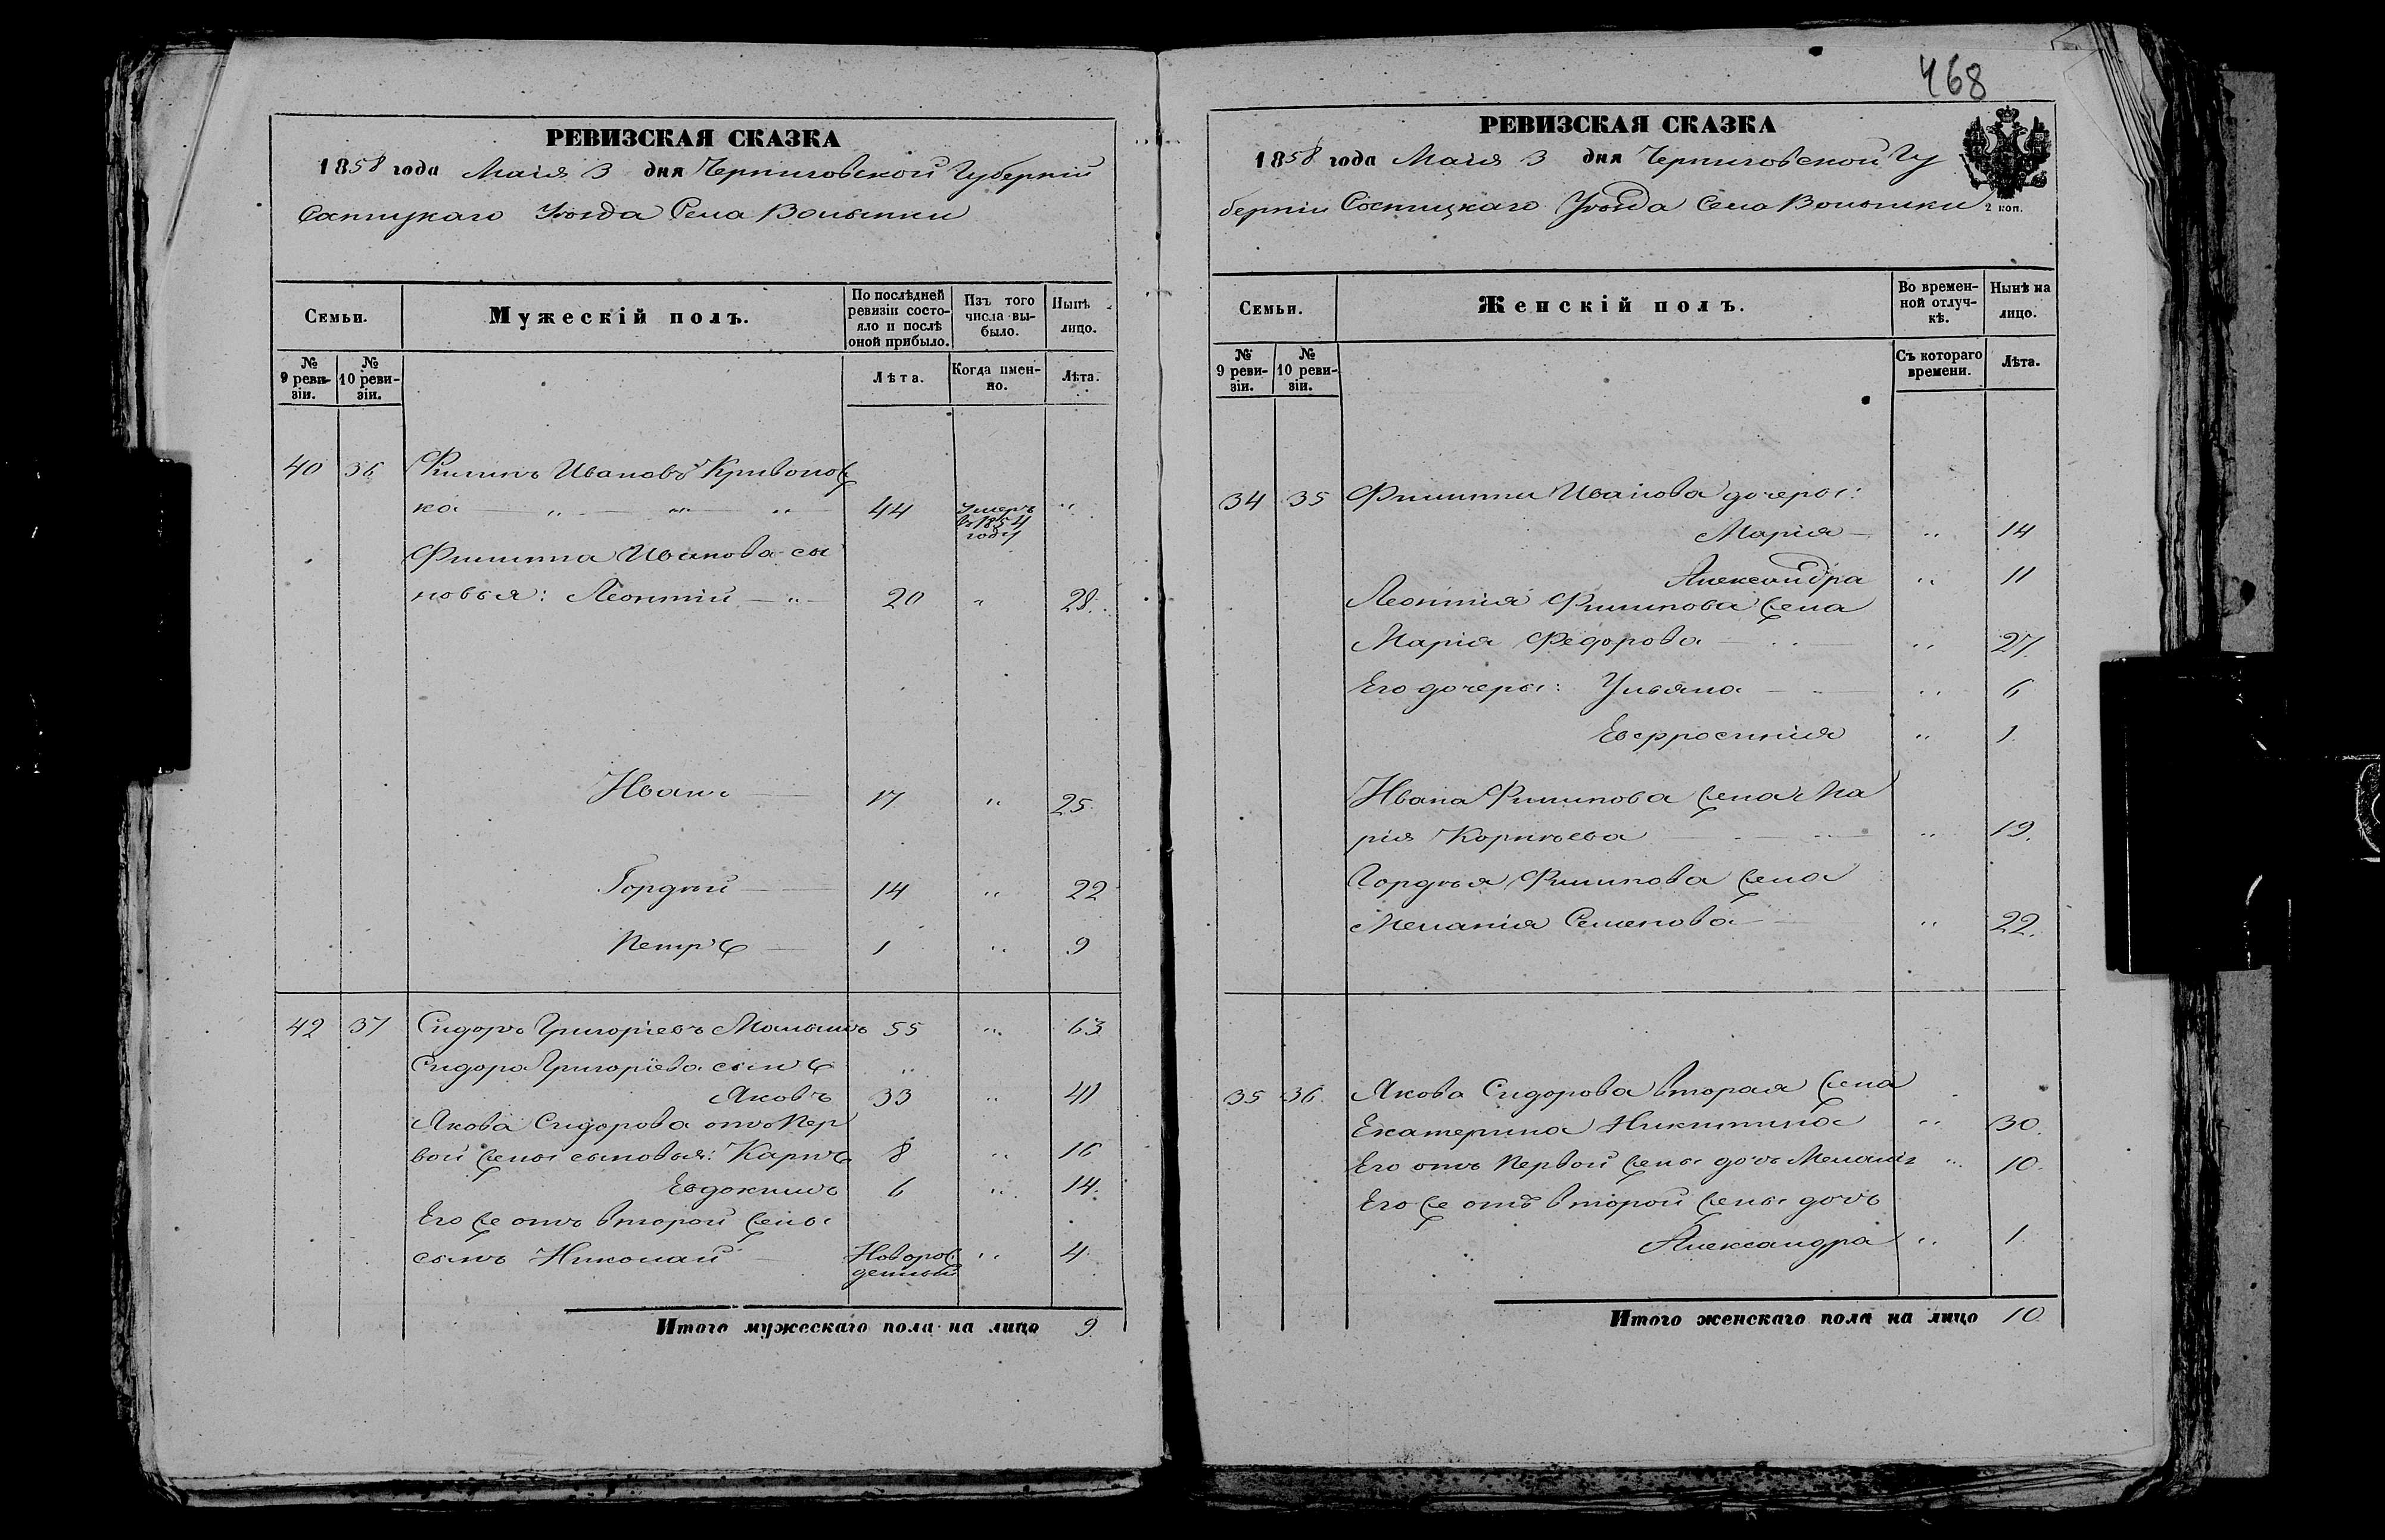 468
РЕВИЗСКАЯ СКАЗКА
1858 года Маія 3 дня Черниговской Губерніи
Сосницкаго Уѣзда Села Волынки
Семьи.
Мужескій полъ.
По послѣдней ревизіи состояло и послѣ оной прибыло.
Изъ того числа выбыло.
Нынѣ лицо.
№ 9 ревизіи.
№ 10 ревизіи.
Лѣта.
Когда именно.
Лѣта.
40 36 Филипъ Ивановъ Кривонож
ка „ „ „ 44 Умеръ въ 1854 году „
Филиппа Иванова сы
новья: Леонтій „ 20 „ 28.
Иванъ 17 „ 25
Гордѣй 14 „ 22
Петръ 1 „ 9
42 37 Сидоръ Григоріевъ 55 „ 63
Сидора Григоріева сынъ „
Яковъ 33 „ 41
Якова Сидорова отъ пер
вой жены сыновья: Карпъ 8 „ 16
Евдокимъ 6 „ 14.
Его же отъ второй жены
сынъ Николай Новорож денный „ 4
Итого мужескаго пола на лицо 9.
РЕВИЗСКАЯ СКАЗКА
1858 года Маія 3 дня Черниговской Гу
берніи Сосницкаго Уѣзда Села Волынки
2 коп.
Семьи.
Женскій полъ.
Во временной отлучкѣ.
Нынѣ на лицо.
№ 9 ревизіи.
№ 10 ревизіи.
Съ котораго времени.
Лѣта.
34 35 Филиппа Иванова дочеры:
Марія „ 14
Александра „ 11
Леонтія Филипова жена
Марія Федорова „ 27.
Его дочеры: Ульяна „ 6
Евфросинія „ 1.
Ивана Филипова жена Ма
рія Корнѣева „ 19.
Гордѣя Филипова жена
Меланія Семенова „ 22.
35 36. Якова Сидорова вторая жена
Екатерина Никитина „ 30.
Его отъ первой жены дочь Меланія „ 10.
Его же отъ второй жены дочь
Александра „ 1
Итого женскаго пола на лицо 10.